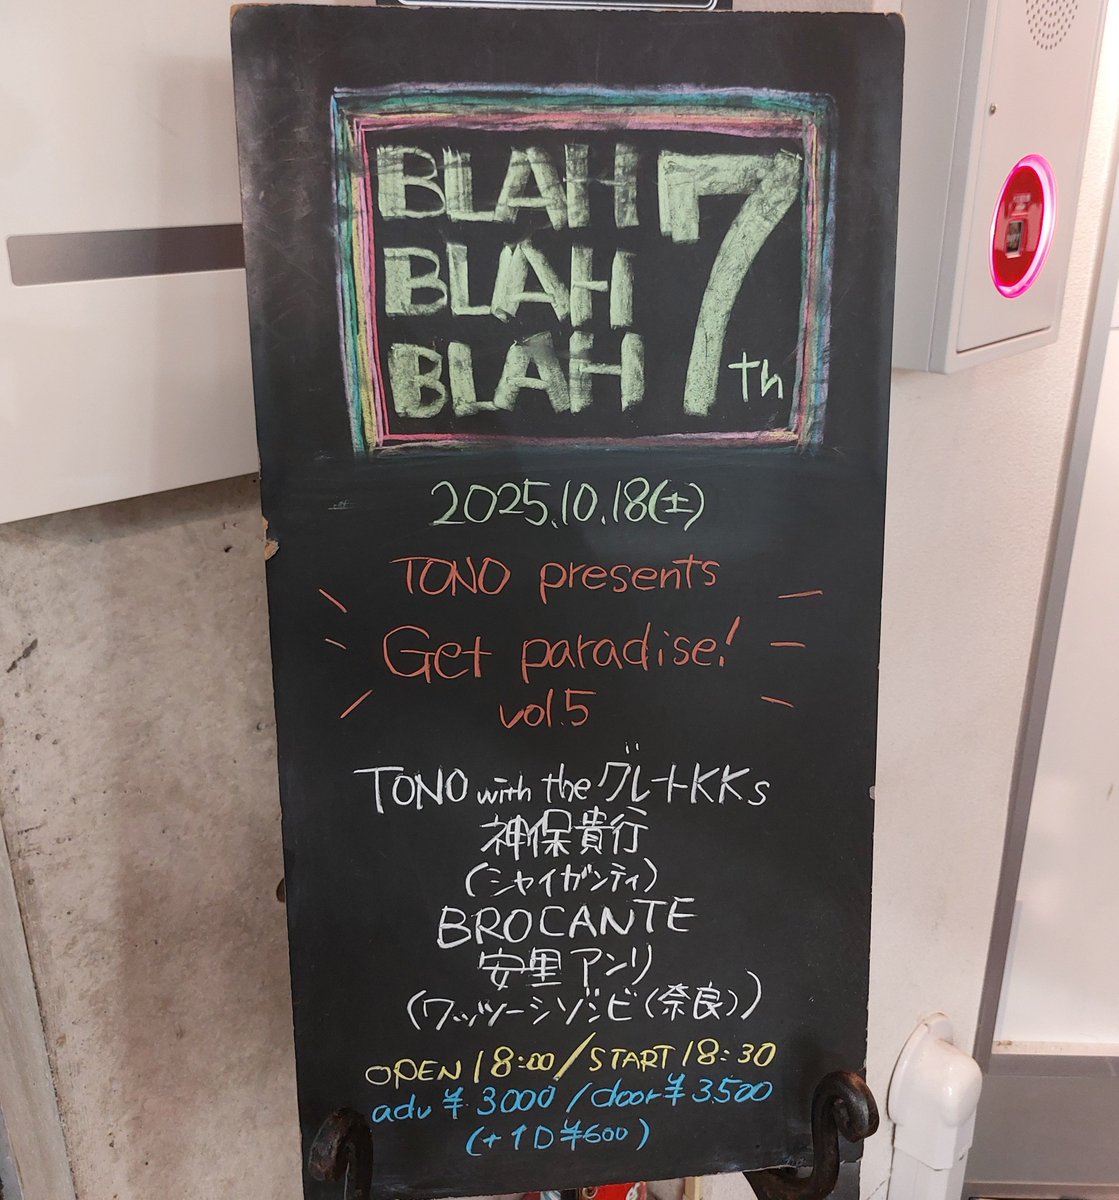 BLAH
BLAH
BLAH
7th
2025.10.18(土)
TONO presents
Get paradise!
vol.5
TONO with the グレートKKs
神保貴行
(シャイガンティ)
BROCANTE
安里アンリ
(ワッツーシゾンビ(奈良))
OPEN 18:00/START 18:30
adv ¥3000/door ¥3500
(+1D ¥600)